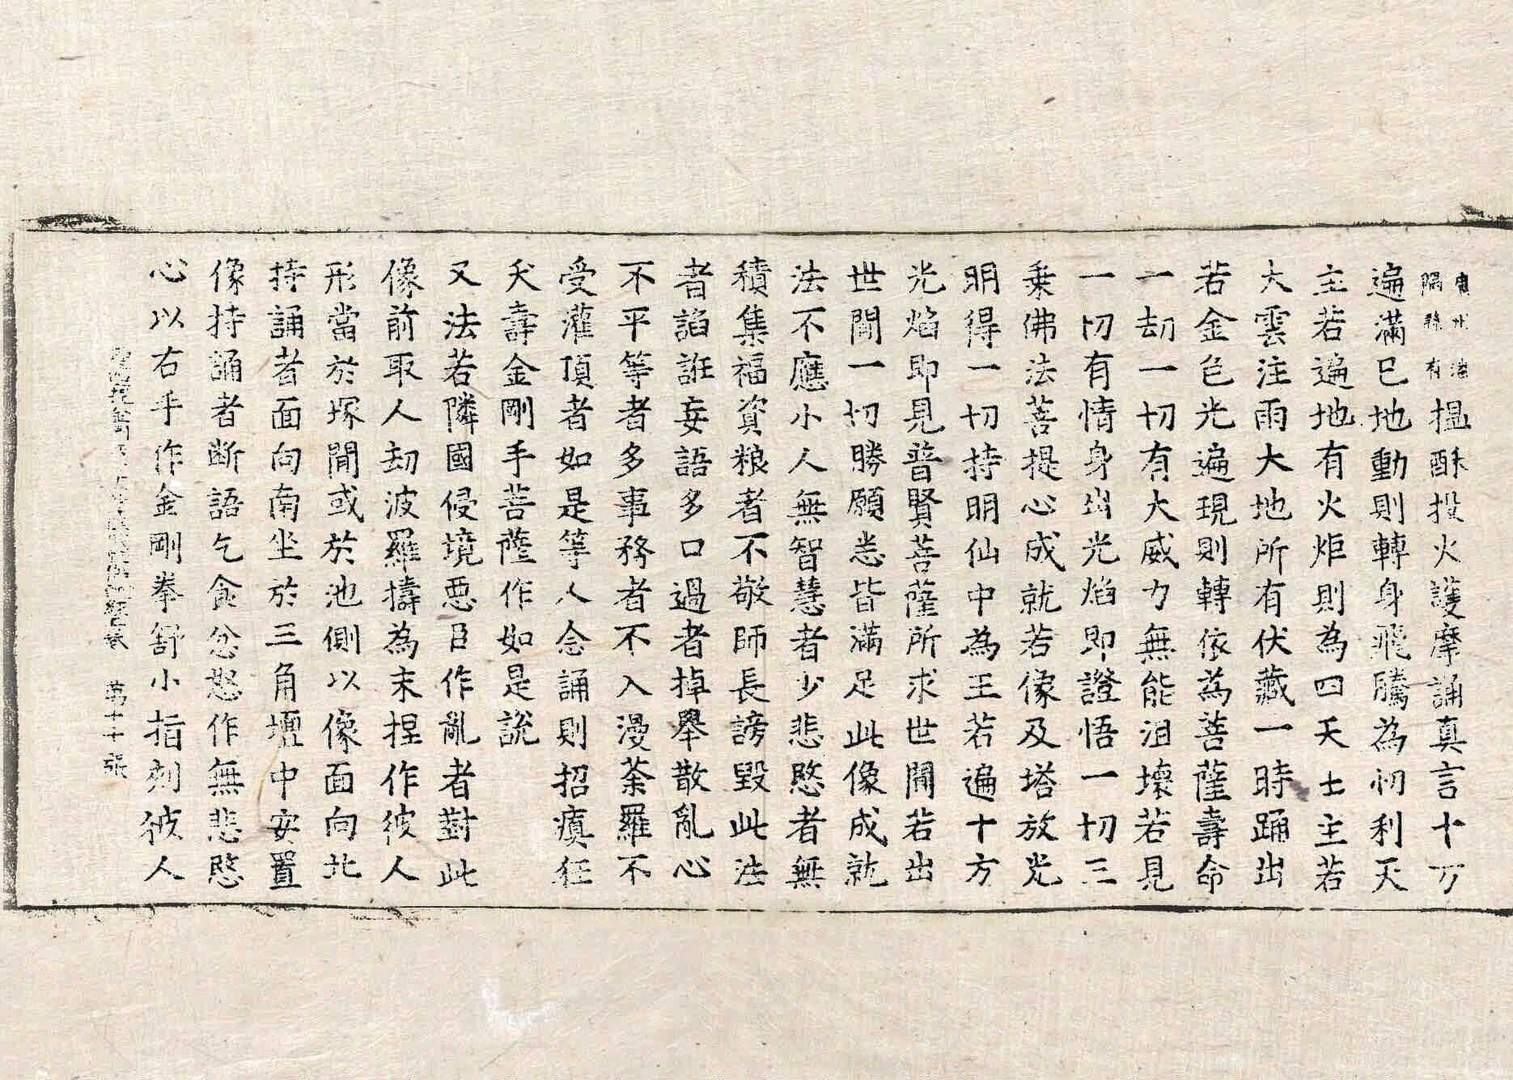 搵酥投火護摩誦真言十万
遍滿已地動則轉身飛騰為忉利天
主若遍地有火炬則為四天士主若
大雲注雨大地所有伏藏一時踊出
若金色光遍現則轉依為菩薩壽命
一劫一切有大威力無能沮壞若見
一切有情身出光焰即證悟一切三
乗佛法菩提心成就若像及塔放光
明得一切持明仙中為王若遍十方
光焰即見普賢菩薩所求世間若出
世間一切勝願悉皆滿足此像成就
法不應小人無智慧者少悲愍者無
積集福資粮者不敬師長謗毀此法
者諂誑妄語多口過者掉舉散亂心
不平等者多事務者不入漫荼羅不
受灌頂者如是等人念誦則招瘨狂
夭壽金剛手菩薩作如是說
又法若隣國侵境惡臣作亂者對此
像前取人劫波羅擣為末捏作彼人
形當於塚間或於池側以像面向北
持誦者面向南坐於三角壇中安置
像持誦者斷語乞食忿怒作無悲愍
心以右手作金剛拳舒小指刻彼人